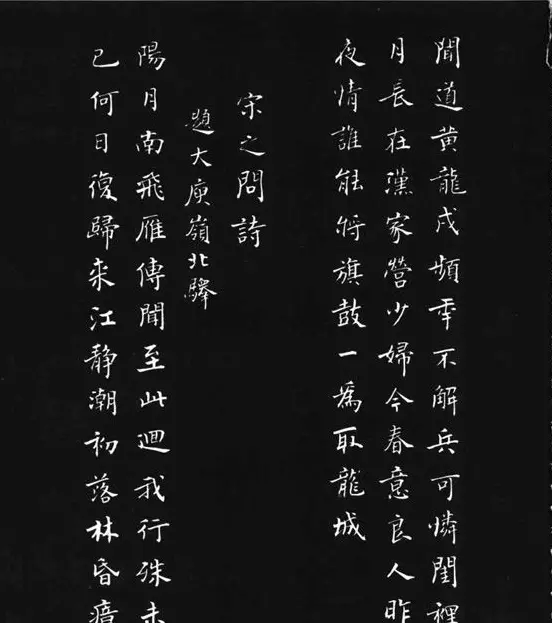 聞道黄龍戍頻年不解兵可憐閨裡
月長在漢家營少婦今春意良人昨
夜情誰能將旗鼓一爲取龍城
宋之問詩
題大庾嶺北驛
陽月南飛雁傳聞至此迴我行殊未
已何日復歸来江静潮初落林昏瘴